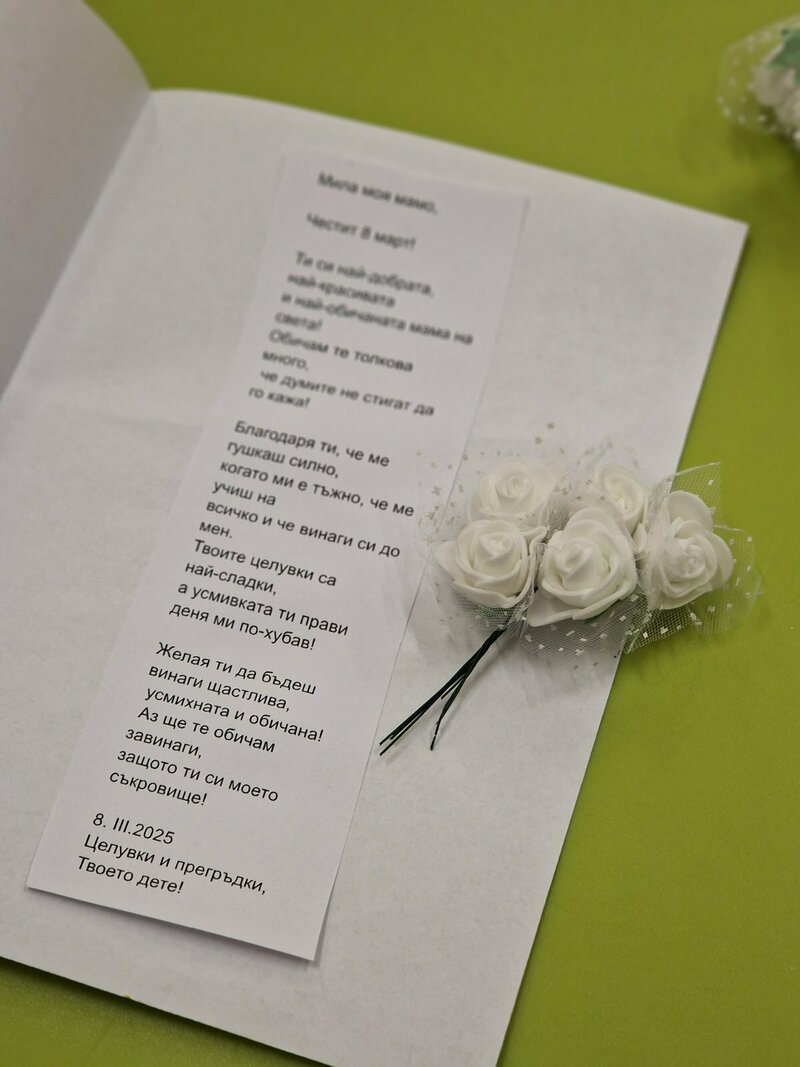 Мила моя мамо,
Честит 8 март!
Ти си най-добрата,
най-красивата
и най-обичаната мама на
света!
Обичам те толкова
много,
че думите не стигат да
го кажа!
Благодаря ти, че ме
гушкаш силно,
когато ми е тъжно, че ме
учиш на
всичко и че винаги си до
мен.
Твоите целувки са
най-сладки,
а усмивката ти прави
деня ми по-хубав!
Желая ти да бъдеш
винаги щастлива,
усмихната и обичана!
Аз ще те обичам
завинаги,
защото ти си моето
съкровище!
8. III.2025
Целувки и прегръдки,
Твоето дете!